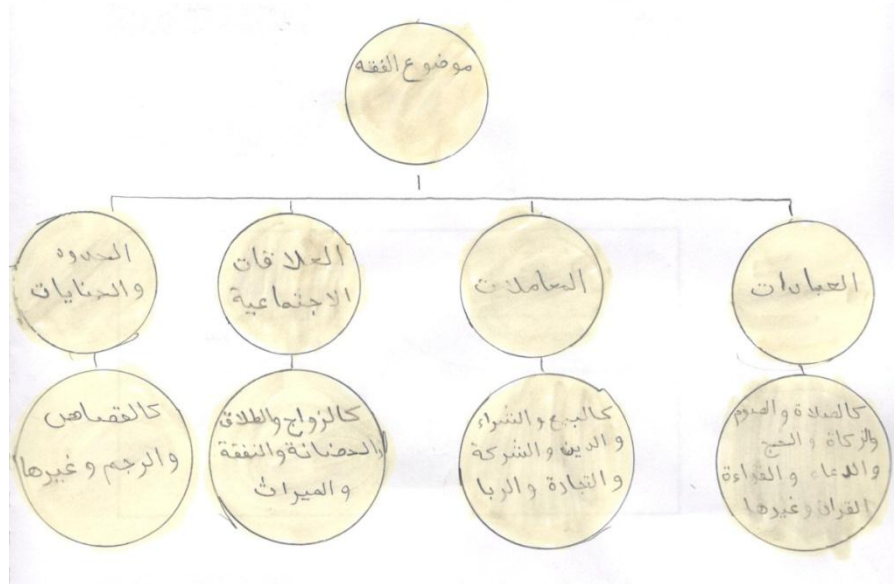 موضوع الفقه
العبادات
المعاملات
العلاقات
الاجتماعية
الحدود
والجنايات
كالصلاة والصوم
والزكاة والحج
والدعاء والقراءة
القران وغيرها
كالبيع والشراء
والدين والشركة
والتجارة والربا
كالزواج والطلاق
والحضانة والنفقة
والميراث
كالقصاص
والرجم وغيرها